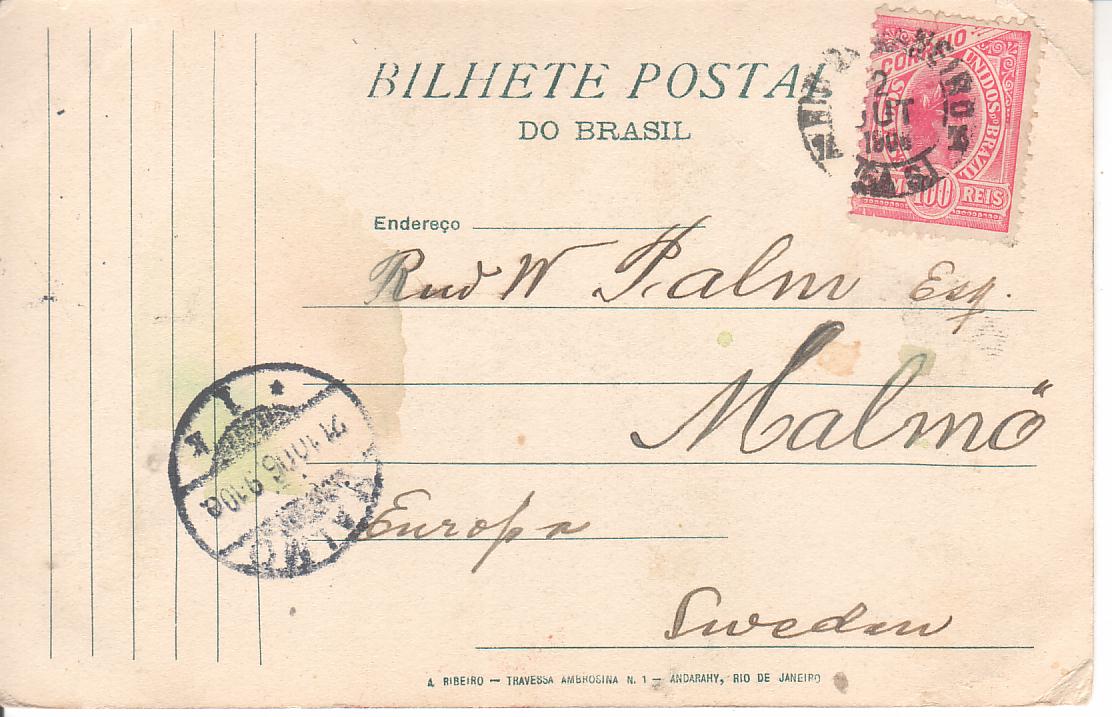 BILHETE POSTAL
DO BRASIL
CORREIO
UNIDOS DO BRAZIL
100 REIS
2
OUT
Endereço
Rud W Palm Esq.
Malmö
Europa
Sweden
MALMÖ
21.10.
K
1
A. RIBEIRO — TRAVESSA AMBROSINA N. 1 — ANDARAHY, RIO DE JANEIRO